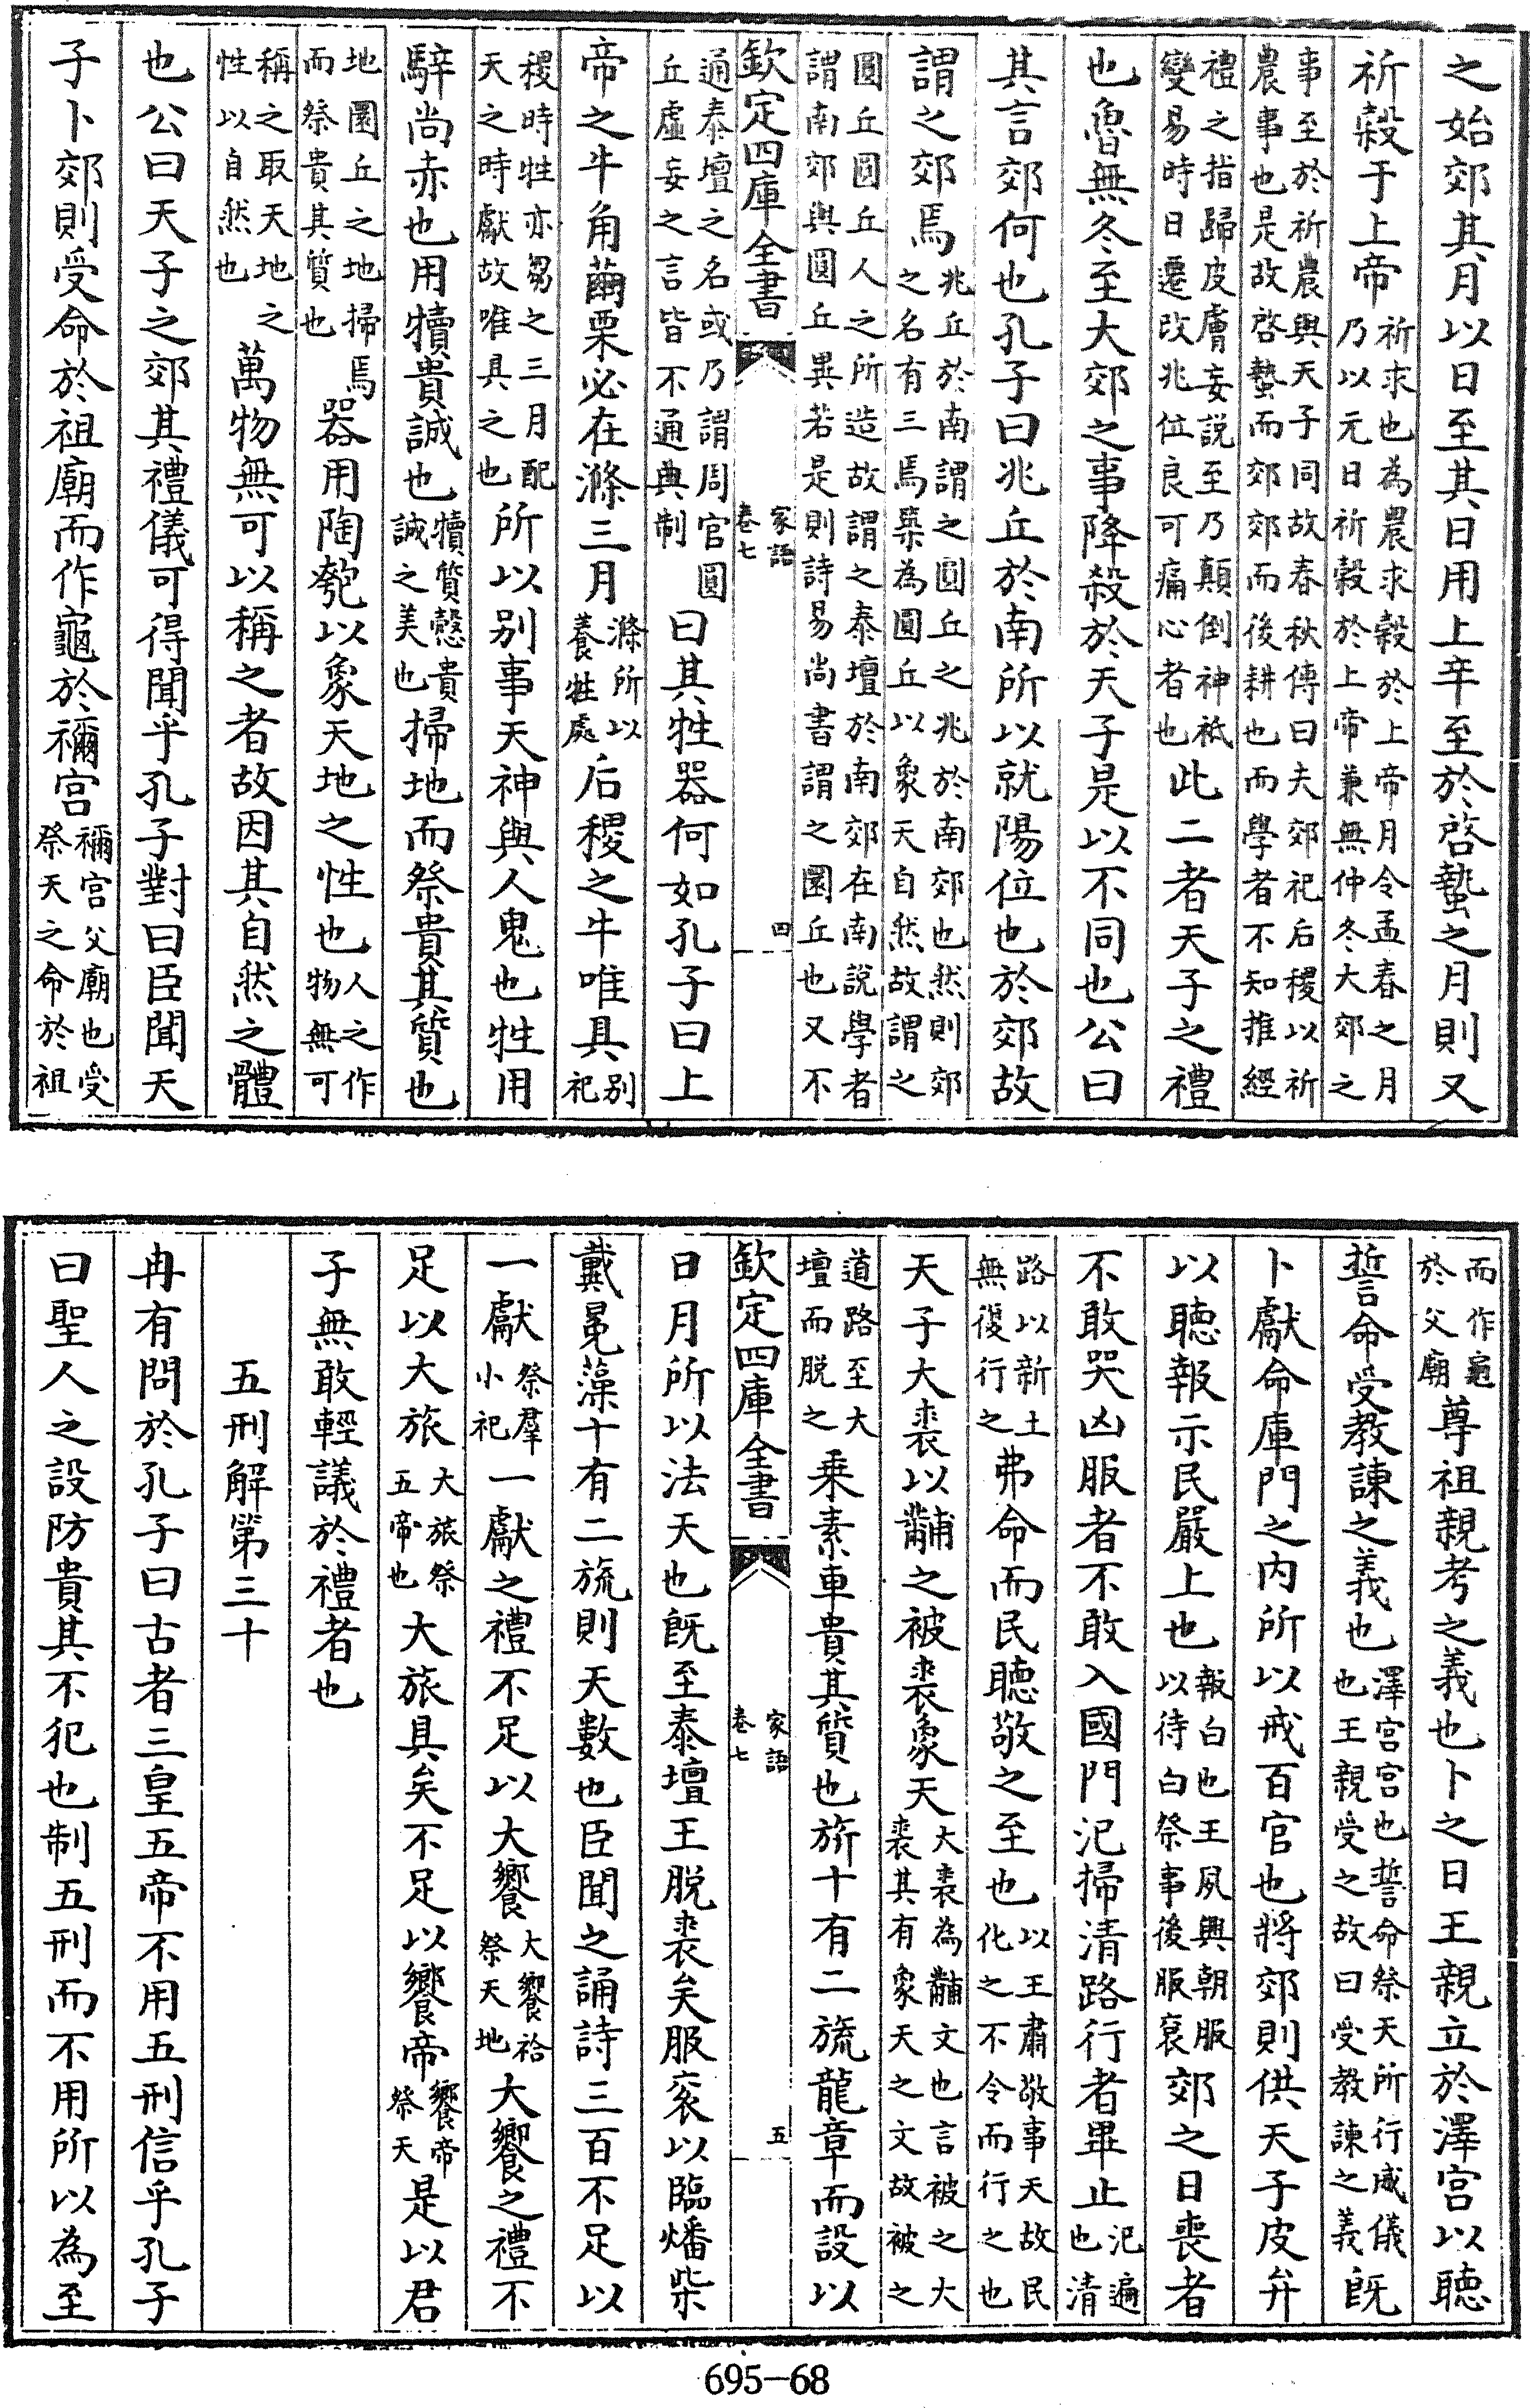 之始郊其月以日至其日用上辛至於啓蟄之月則又
祈穀于上帝祈求也為農求穀於上帝月令孟春之月乃以元日祈穀於上帝兼無仲冬大郊之
事至於祈農與天子同故春秋傳曰夫郊祀后稷以祈農事也是故啓蟄而郊郊而後耕也而學者不知推經
禮之指歸皮膚妄說至乃顛倒神祇變易時日遷改兆位良可痛心者也此二者天子之禮
也魯無冬至大郊之事降殺於天子是以不同也公曰
其言郊何也孔子曰兆丘於南所以就陽位也於郊故
謂之郊焉兆丘於南謂之圓丘之兆於南郊也然則郊之名有三焉築為圓丘以象天自然故謂之
圓丘圓丘人之所造故謂之泰壇於南郊在南說學者謂南郊與圓丘異若是則詩易尚書謂之圜丘也又不
欽定四庫全書 家語卷七 四
通泰壇之名或乃謂周官圓丘虛妄之言皆不通典制曰其牲器何如孔子曰上
帝之牛角繭栗必在滌三月滌所以養牲處后稷之牛唯具別祀
稷時牲亦芻之三月配天之時獻故唯具之也所以别事天神與人鬼也牲用
騂尚赤也用犢貴誠也犢質慤貴誠之美也掃地而祭貴其質也
地圜丘之地掃焉而祭貴其質也器用陶匏以象天地之性也人之作物無可
稱之取天地之性以自然也萬物無可以稱之者故因其自然之體
也公曰天子之郊其禮儀可得聞乎孔子對曰臣聞天
子卜郊則受命於祖廟而作龜於禰宮禰宮父廟也受祭天之命於祖
而作龜於父廟尊祖親考之義也卜之日王親立於澤宮以聽
誓命受教諫之義也澤宮宮也誓命祭天所行威儀也王親受之故曰受教諫之義既
卜獻命庫門之內所以戒百官也將郊則供天子皮弁
以聽報示民嚴上也報白也王夙興朝服以待白祭事後服袞郊之日喪者
不敢哭凶服者不敢入國門汜掃清路行者畢止汜遍也清
路以新土無復行之弗命而民聽敬之至也以王肅敬事天故民化之不令而行之也
天子大裘以黼之被裘象天大裘為黼文也言被之大裘其有象天之文故被之
道路至大壇而脫之乘素車貴其質也旂十有二旒龍章而設以
欽定四庫全書 家語卷七 五
日月所以法天也既至泰壇王脫裘矣服袞以臨燔柴
戴冕藻十有二旒則天數也臣聞之誦詩三百不足以
一獻祭羣小祀一獻之禮不足以大饗大饗祫祭天地大饗之禮不
足以大旅大旅祭五帝也大旅具矣不足以饗帝饗帝祭天是以君
子無敢輕議於禮者也
五刑解第三十
冉有問於孔子曰古者三皇五帝不用五刑信乎孔子
曰聖人之設防貴其不犯也制五刑而不用所以為至
695-68